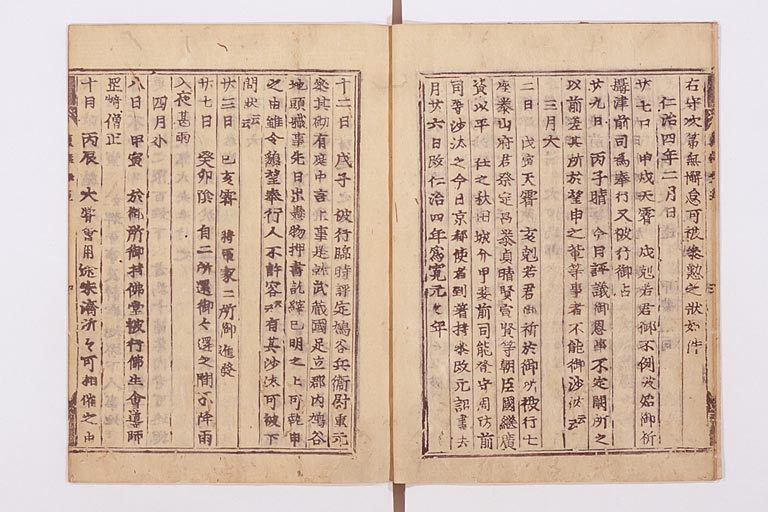 右守次第無懈怠可被參懃之狀如件
仁治四年二月日
廿七日 甲戌天霽 戌剋若君御不例被始御祈
攝津前司爲奉行又被行御占
廿九日 丙子晴 今日評議御恩事不定闕所之
以前差其所於望申之輩等事者不能御沙汰云云
三月大
二日 戊寅天霽 亥剋若君御祈於御所被行七
座泰山府君祭定昌泰貞晴賢宣賢等朝臣國継廣
資以平 仕之秋田城介甲斐前司能登守周防前
司等沙汰之今日京都使者到著持參改元詔書去
月廿六日改仁治四年爲寛元々年
十二日 戊子 被行臨時評定鳩谷兵衛尉重元
參其砌有庭中言上事是武藏國足立郡内鳩谷
地頭職事先日出懸物押書訖 已明之上可 申
之由雖令懇望奉行人不許容云云有其沙汰可被下
問狀云云
廿三日 己亥霽 將軍家二所御進發
廿七日 癸卯陰 自二所還御々還之間不降雨
入夜甚雨
四月小
八日 甲寅 於御所御持佛堂被行佛生會導師
岡崎僧正
十日 丙辰 會用途未濟所々可相催之由